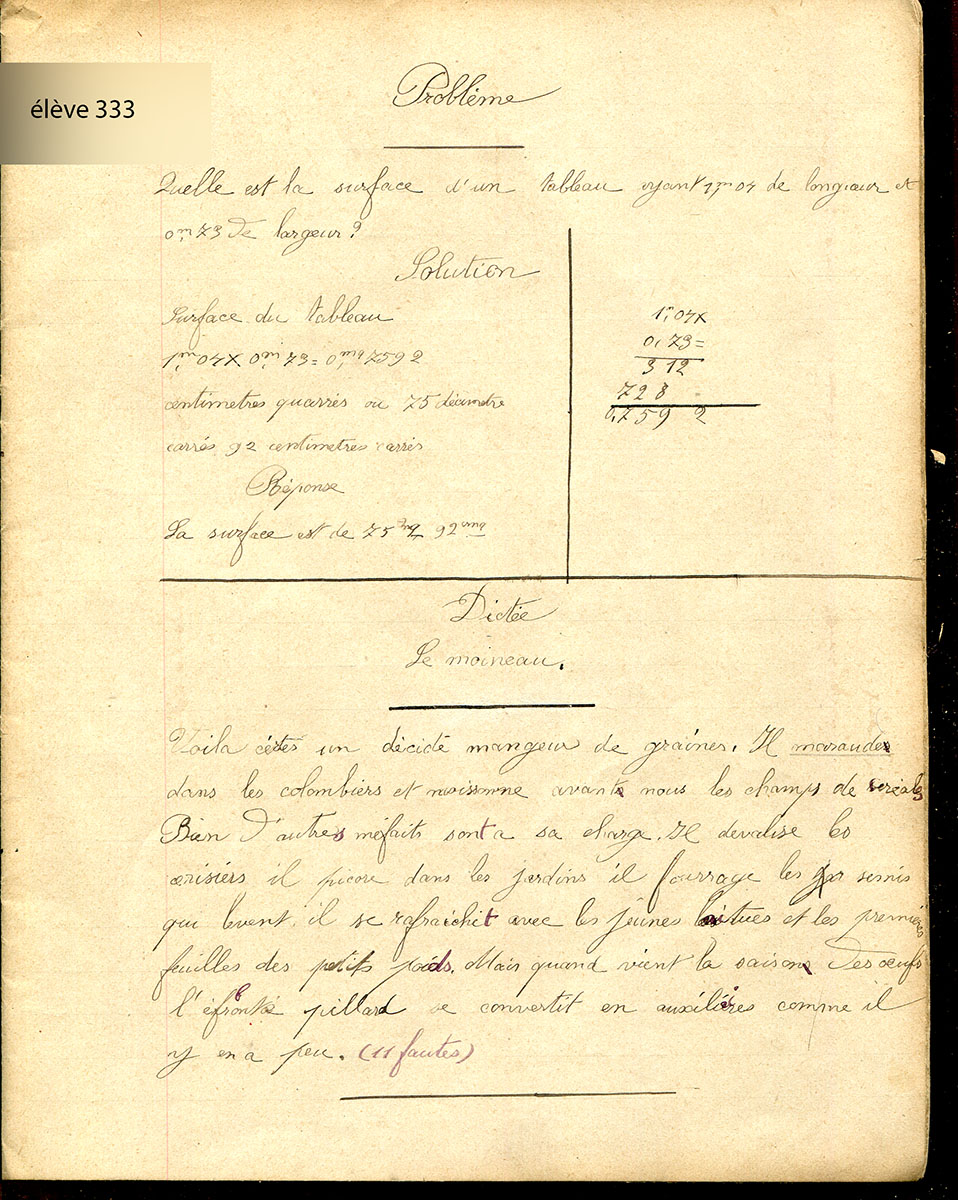 élève 333
Problème
Quelle est la surface d'un tableau ayant 1,m04 de longueur et
0,m73 de largeur ?
Solution
Surface du tableau
1,m04 X 0,m73 = 0,mq7592
centimetres quarrés ou 75 décimetre
carrés 92 centimetres carrés
Réponse
La surface est de 75 92cmq
1,m04x
0,73=
3 12
72 8
0,759 2
Dictée
Le moineau.
Voila cértes un décidé mangeur de graines. Il maraude
dans les colombiers et moissonne avant nous les champs de céréales
Bien d'autres méfaits sont a sa charge. Il devalise les
cerisiérs il picore dans les jardins il fourrage les semis
qui levent il se rafraichit avec les jeunes laitues et les premières
feuilles des petits poids. Mais quand vient la saison des œufs
l'éffronté pillard se convertit en auxiliaires comme il
y en a peu. (11 fautes)